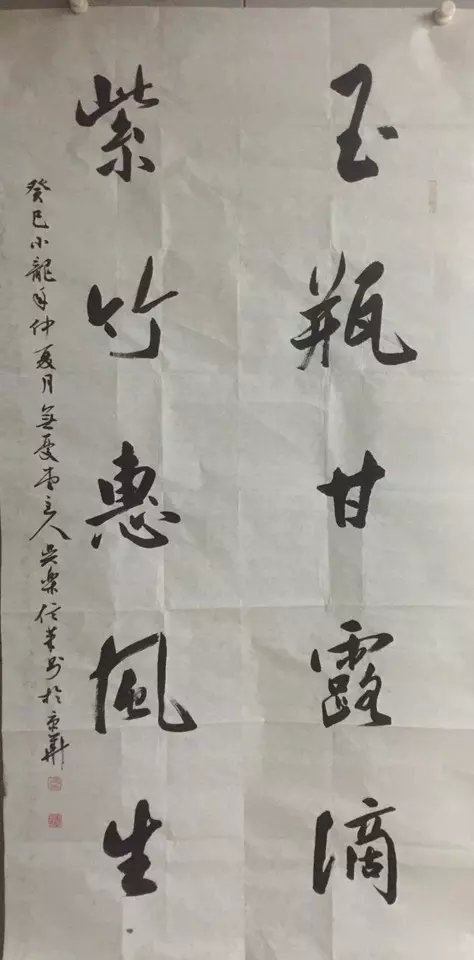 玉瓶甘露滴
紫竹惠风生
癸巳小龍年仲夏月無憂堂主人吳樂信書於京華